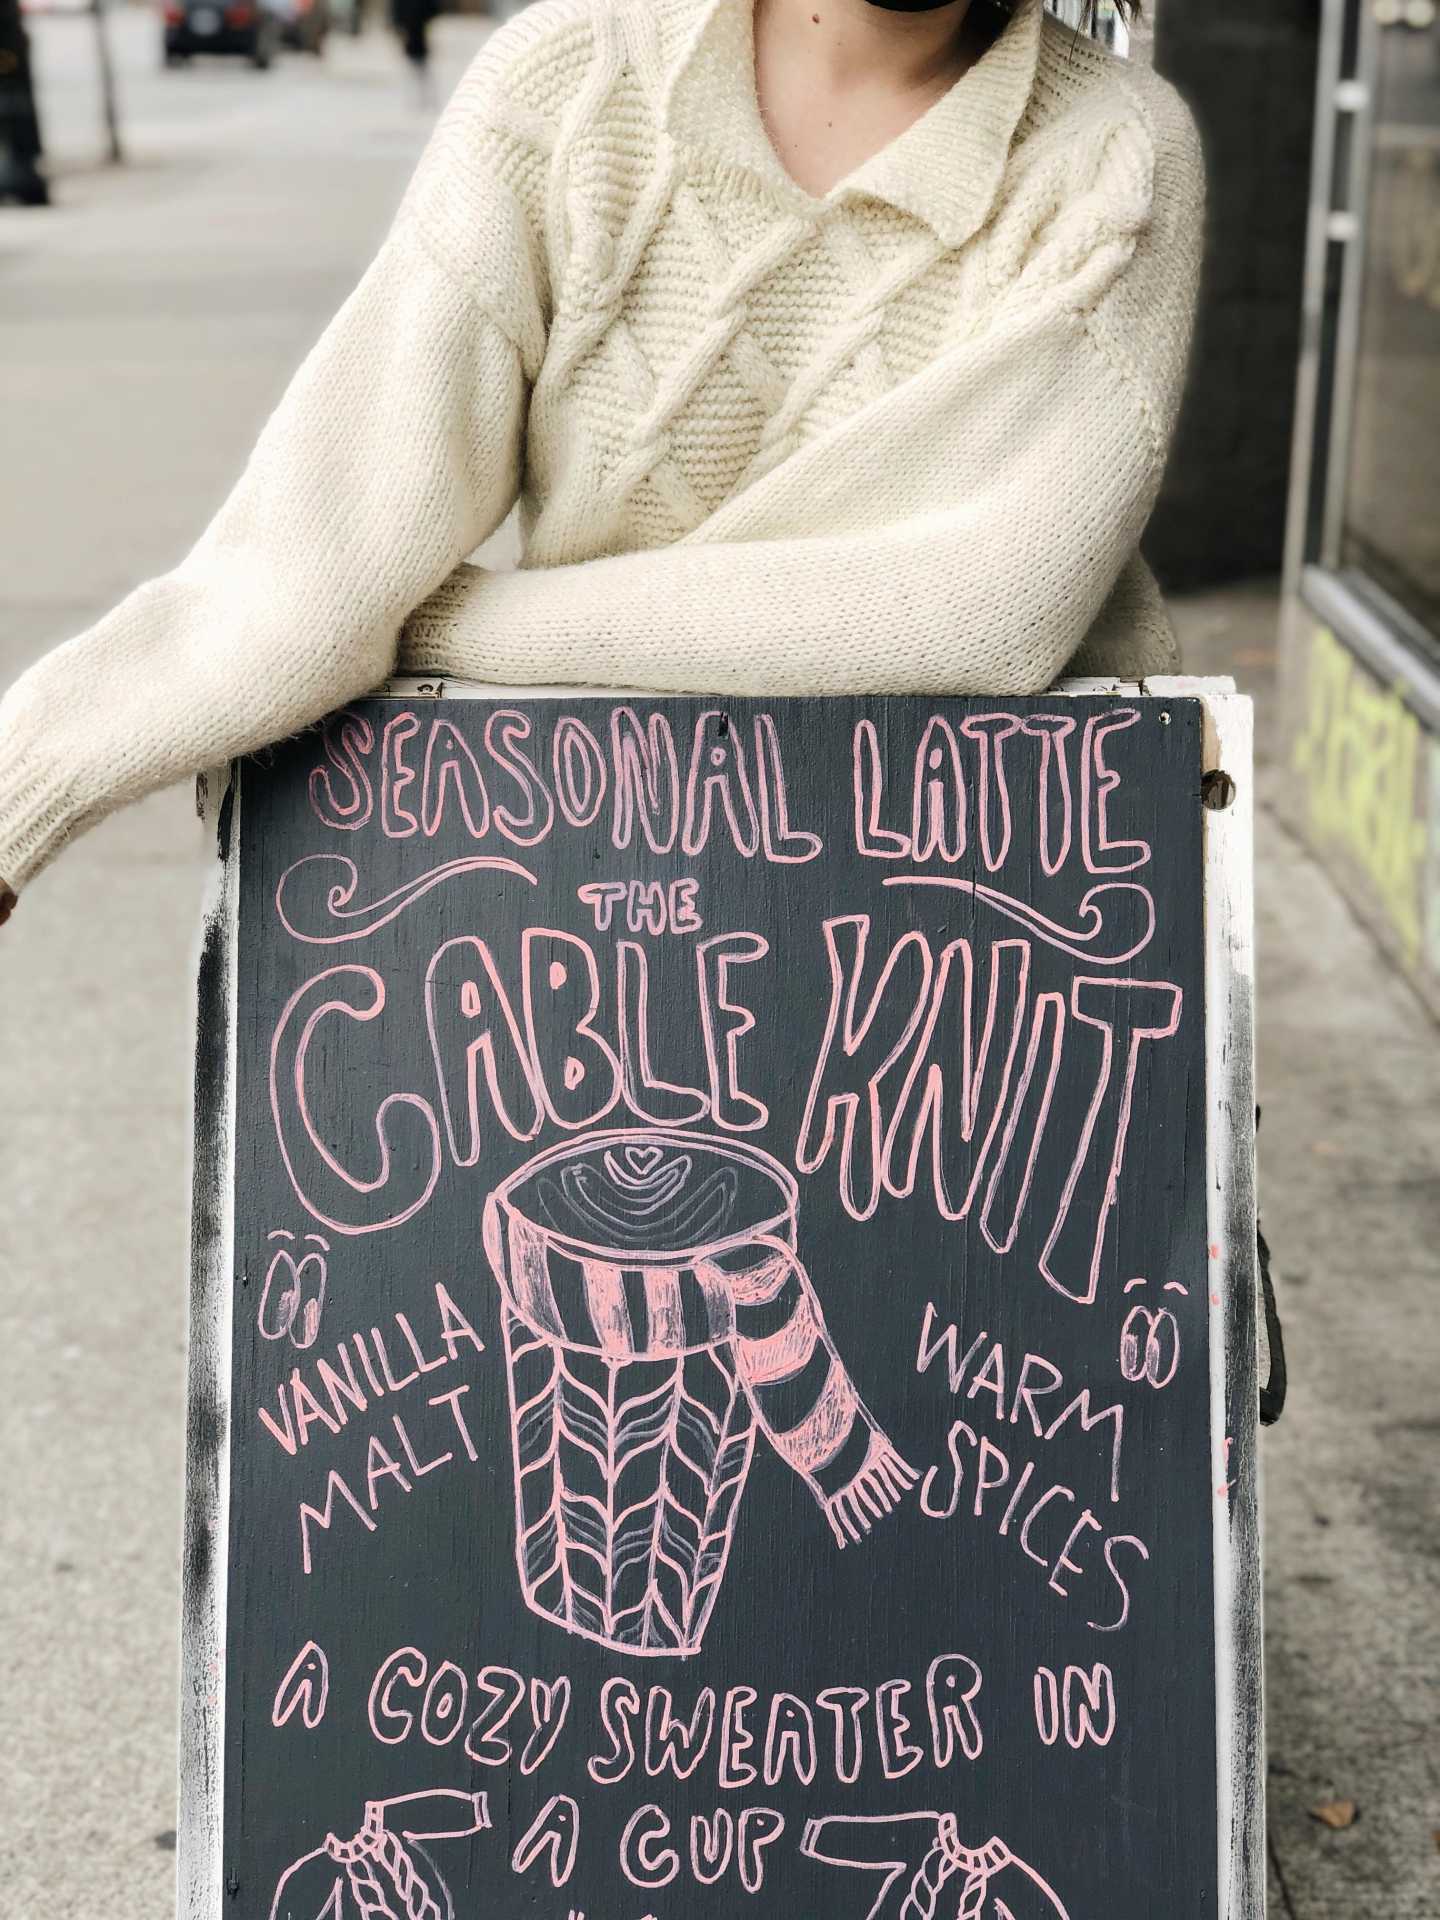 SEASONAL LATTE
THE
CABLE KNIT
VANILLA
MALT
WARM
SPICES
A COZY SWEATER IN
A CUP